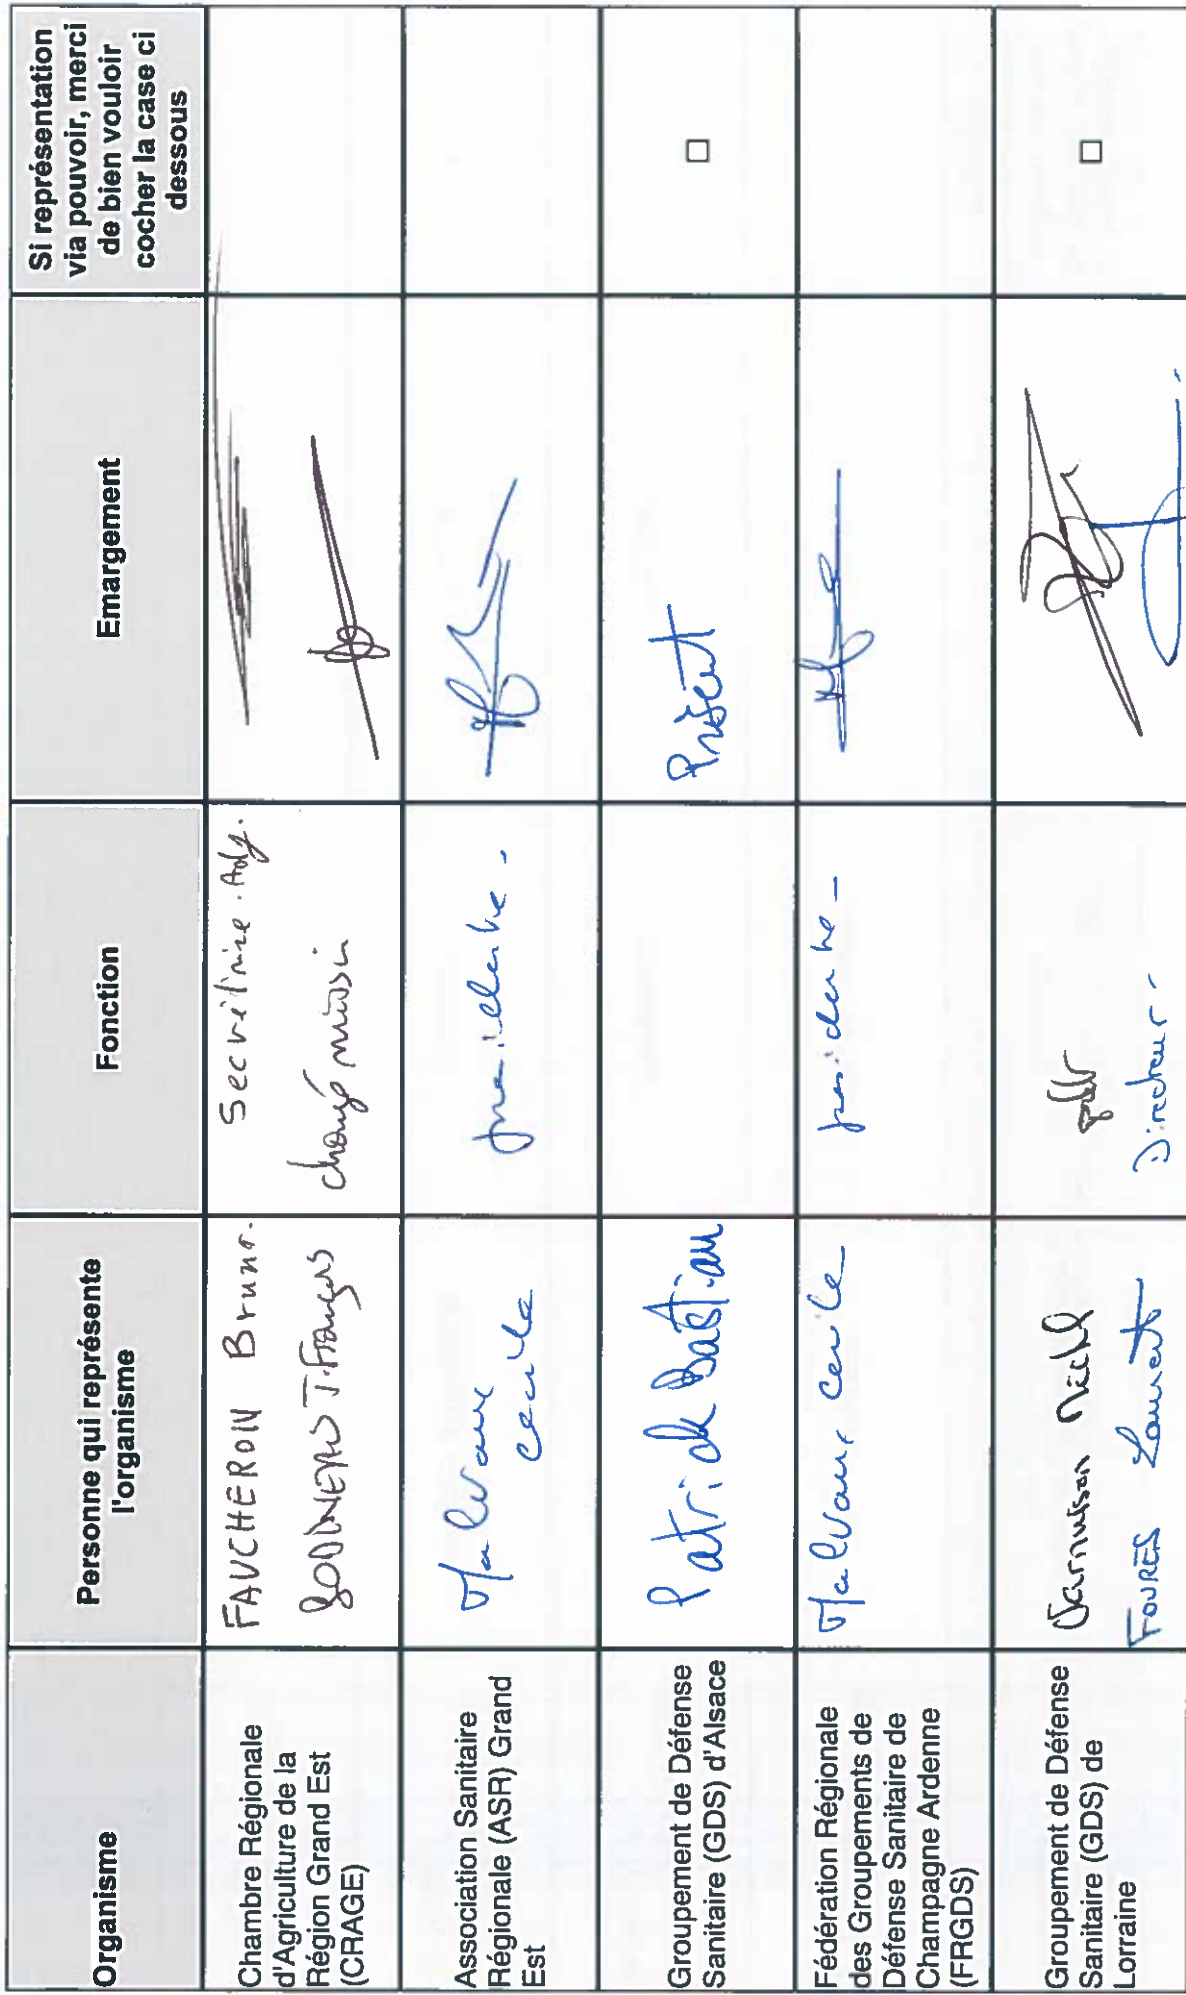 Organisme
Personne qui représente
l'organisme
Fonction
Emargement
Si représentation
via pouvoir, merci
de bien vouloir
cocher la case ci
dessous
Chambre Régionale
d'Agriculture de la
Région Grand Est
(CRAGE)
FAUCHERON Bruno.
J. François
Secrétaire. Adj.
chargé mission
Association Sanitaire
Régionale (ASR) Grand
Est
cecile
presidente -
Groupement de Défense
Sanitaire (GDS) d'Alsace
Patrick Bastian
Présent
Fédération Régionale
des Groupements de
Défense Sanitaire de
Champagne Ardenne
(FRGDS)
cecile
presidente -
Groupement de Défense
Sanitaire (GDS) de
Lorraine
FOURÈS Laurent
Directeur -